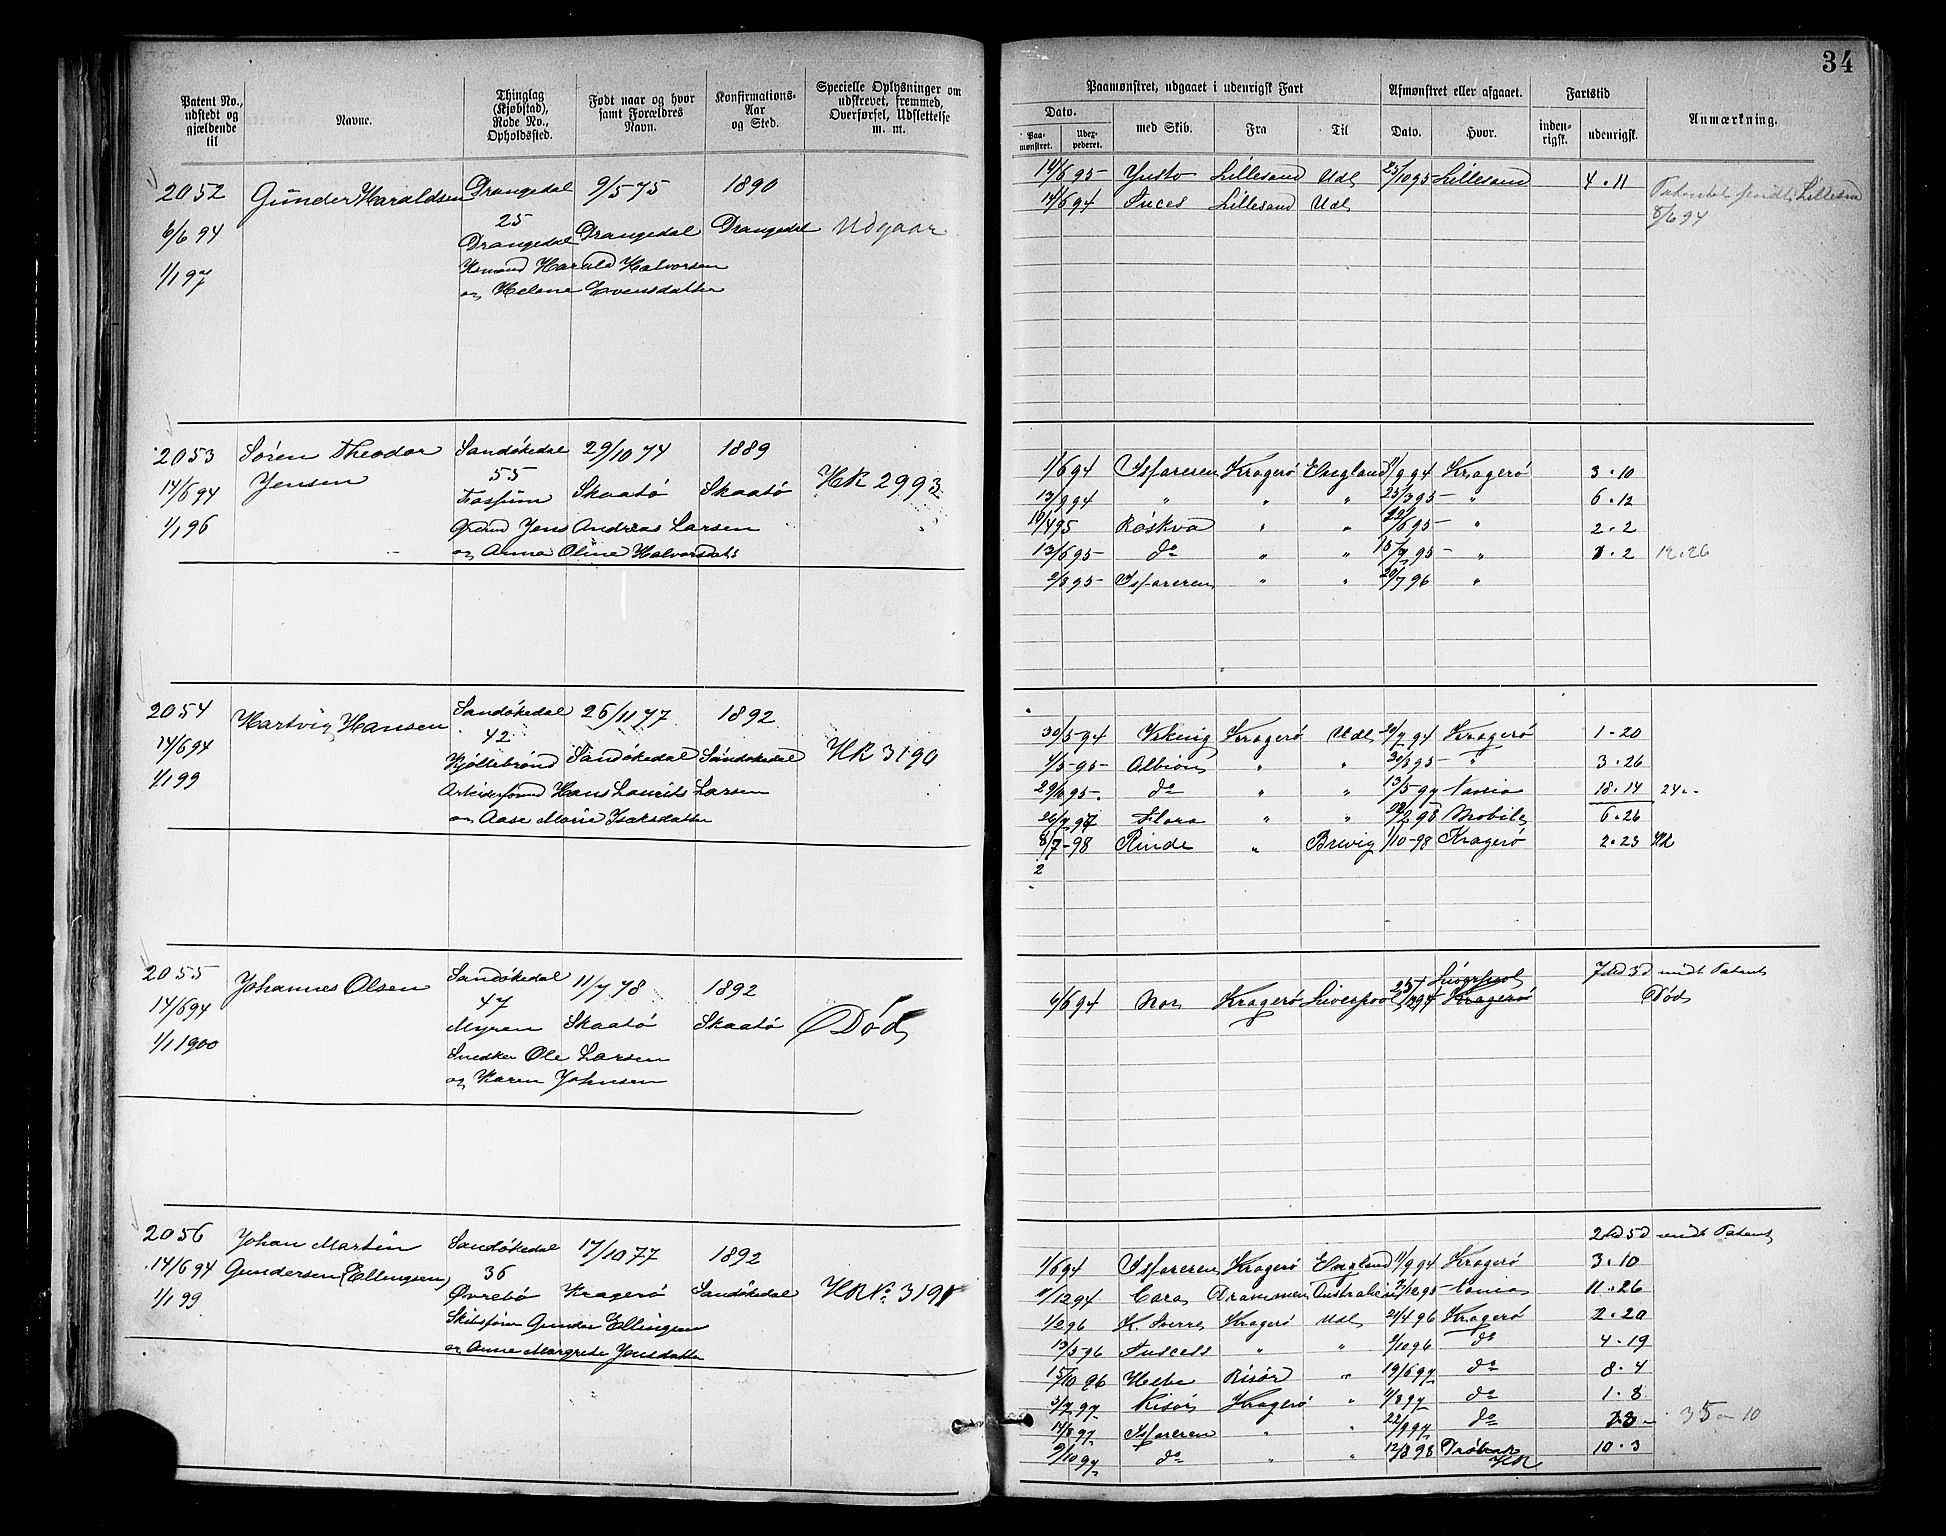 34
Patent No., udstedt og gjældende til
Navne.
Thinglag (Kjøbstad), Rode No., Opholdssted.
Født naar og hvor samt Forældres Navn.
Konfirmations-Aar og Sted.
Specielle Oplysninger om udskrevet, fremmed, Overførsel, Udslettelse m. m.
Paamønstret, udgaaet i udenrigsk Fart
Dato.
Paa-mønstret.
Udex-pederet.
med Skib.
Fra
Til
Afmønstret eller afgaaet.
Dato.
Hvor.
Fartstid
inden-rigsk.
udenrigsk.
Anmærkning.
2052 Gunder Haraldsen Drangedal 9/5 75 1890
6/6 94 25
Drangedal Drangedal Drangedal Udgaar
1/1 97 Harald Halvorsen
og Helene Evensdatter
14/6 95 Lillesand Udl 25/10 95 Lillesand 4.11
14/6 94 Lillesand Udl
Lillesand
8/6 94
2053 Søren Theodor Sandøkedal 29/10 74 1889
14/6 94 Jensen 55 Skaatø Skaatø HR 2993
1/1 96 Jens Andreas Larsen
og Anna Oline Halvorsdatr
1/6 94 Isfareren Kragerø England 11/9 94 Kragerø 3.10
13/9 94 " " " 25/3 95 " 6.12
10/4 95 Røskva " " 22/6 95 " 2.2
13/6 95 do " " 15/7 95 " 1.2 12.26
2/8 95 Isfareren " " 20/7 96 "
2054 Hartvig Hansen Sandøkedal 26/11 77 1892
14/6 94 42
Kjølebrønd Sandøkedal Sandøkedal HR 3190
1/1 99 Arbeidsmand Hans Laurits Larsen
og Aase Marie Isaksdatter
30/5 94 Viking Kragerø Udl 94 Kragerø 1.20
1/5 95 Albion " " 30/8 95 " 3.26
29/6 95 do " " 13/5 97 18.14 24.-
26/7 97 Flora " " 98 Mobile 6.26
8/7 98 Rinde " Brevig 1/10 98 Kragerø 2.23
2
2055 Johannes Olsen Sandøkedal 11/7 78 1892
14/6 94 47
Myren Skaatø Skaatø Død
1/1 1900 Snedker Ole Larsen
og Karen Johnsen
7 md 3 d medt Patent
Liverpool
6/6 94 Nor Kragerø Liverpool 94 Kragerø Død
2056 Johan Martin Sandøkedal 17/10 77 1892
14/6 94 Gundersen (Ellingsen) 36
1/1 99 Øvrebø Kragerø Sandøkedal HR No 3191
Gunder Ellingsen
og Anne Margrete Jensdatter
2 md 5 d medt Patent
1/6 94 Isfareren Kragerø England 11/9 94 Kragerø 3.10
11/12 94 Cara Drammen Australien 95 11.26
1/2 96 K. Sverre Kragerø Udl 21/4 96 Kragerø 2.20
13/5 96 " " 2/10 96 do 4.19
15/10 96 Hebe Risør " 19/6 97 do 8.4
3/7 97 Kragerø " 11/8 97 do 1.8
14/8 97 Isfareren " " 22/9 97 do 35 - 10
9/10 97 do " " 12/8 98 Drøbak 10.3
HR